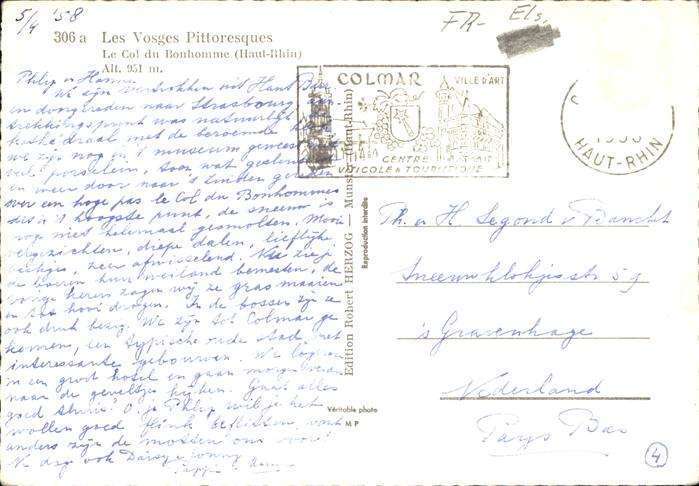 5/4 '58
FR- Els.
306 a Les Vosges Pittoresques
Le Col du Bonhomme (Haut-Rhin)
Alt. 951 m.
COLMAR VILLE D'ART
CENTRE
VITICOLE & TOURISTIQUE
HAUT-RHIN
Phlip en
We zijn vertrokken uit Haut Barr
en doorgereden naar Strasbourg. Aan-
trekkingspunt was natuurlijk
kathedraal met de beroemde
we zijn nog in 't museum geweest
veel porselein, toen wat
en weer door naar 't Zuiden gereden
over een hoge pas le Col du Bonhomme
dit is 't hoogste punt, de sneeuw is
nog niet helemaal gesmolten. Mooie
vergezichten, diepe dalen, liefelijke
zeer afwisselend.
de boeren hun weiland bemesten, de
vorige keren zagen wij ze gras maaien
en hooi drogen. In de bossen zijn ze
ook druk bezig. We zijn tot Colmar ge
komen, een typische oude stad, met
interessante gebouwen. We logeren
in een groot hotel en gaan morgen
naar de geveltjes kijken. Gaat alles
goed thuis? O ja Phlip wil je het
goed flink want
anders zijn de mossen
dag ook Daisy en Conny
Edition Robert HERZOG — Munster (Haut-Rhin)
Reproduction interdite
Véritable photo
M P
Th. v H. Segond v.
Sneeuwklokjesstr 59
's Gravenhage
Nederland
Pays Bas
4